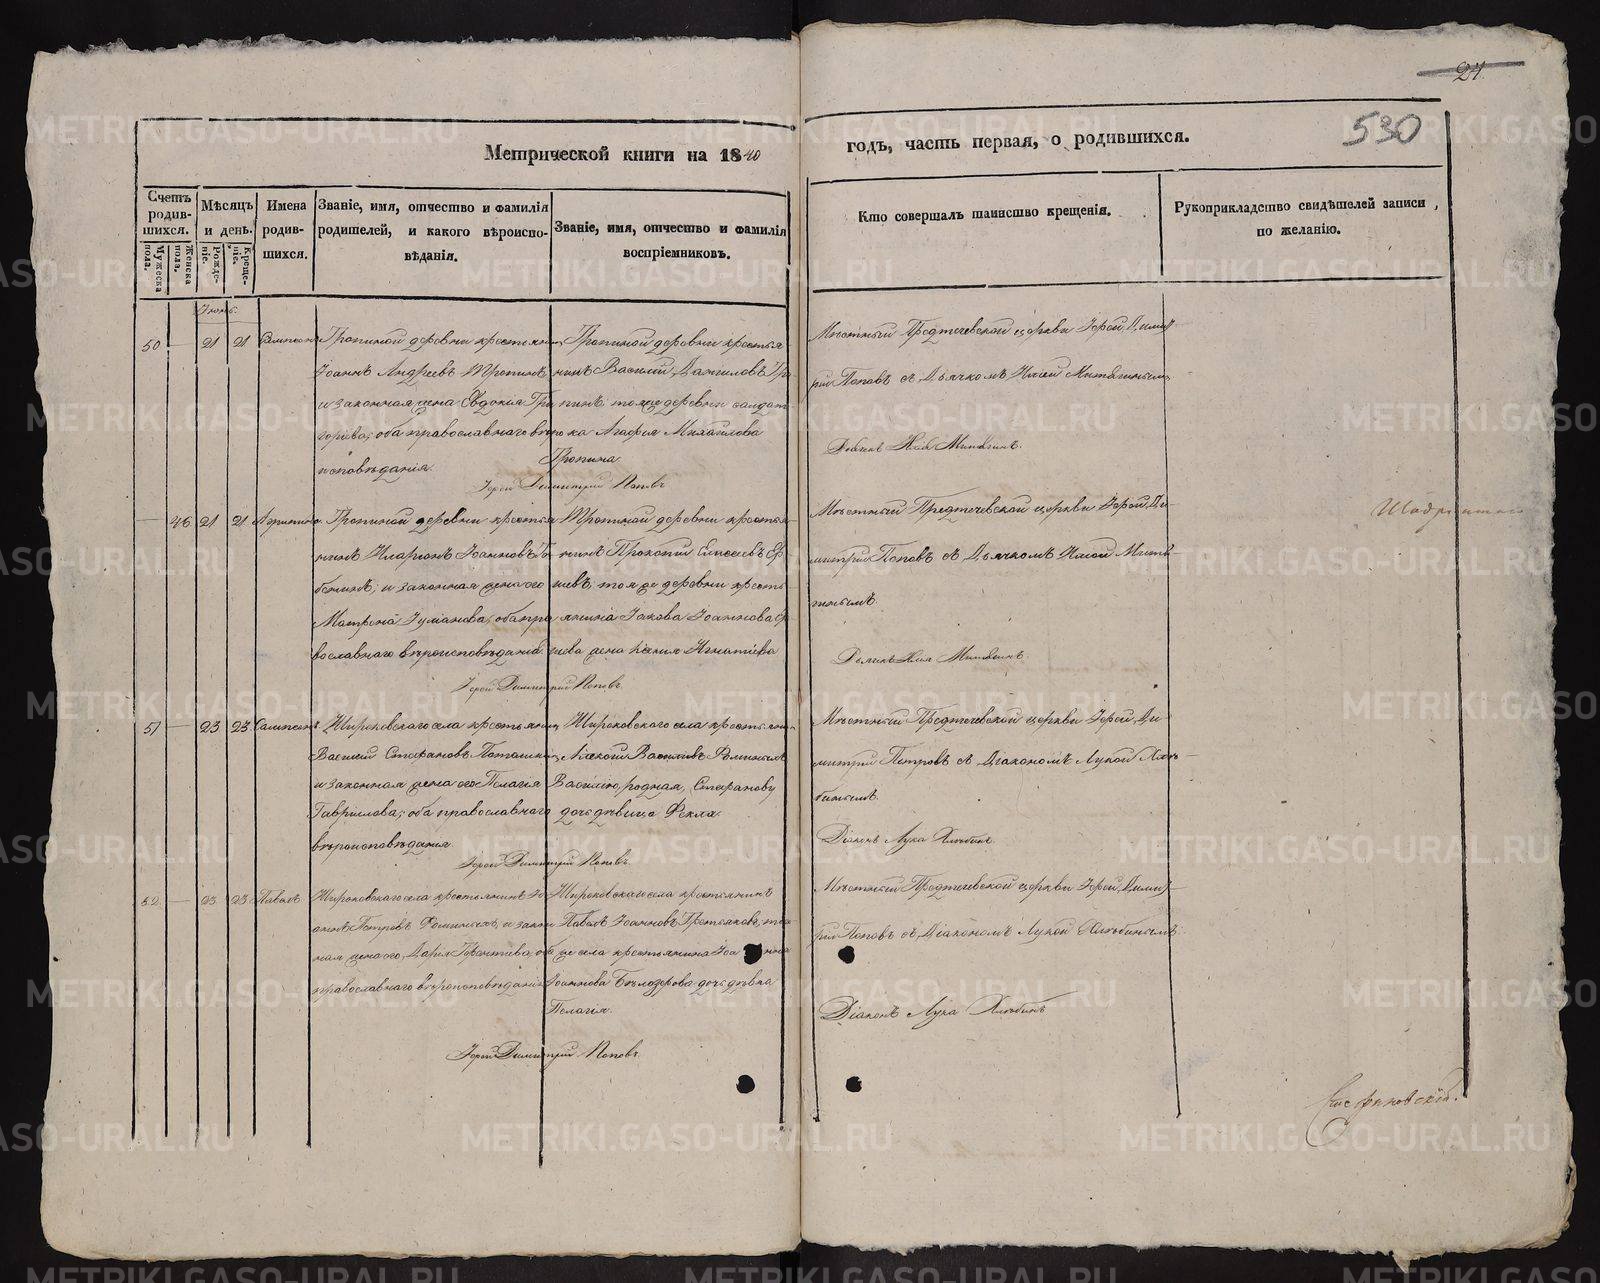 24
530
Метрической книги на 1840
годъ, часть первая, о родившихся.
Счетъ родив-шихся.
Мужеска пола.
Женска пола.
Мѣсяцъ и день.
Рожде-ніе.
Креще-ніе.
Имена родив-шихся.
Званіе, имя, отчество и фамилія родителей, и какого вѣроиспо-вѣданія.
Званіе, имя, отчество и фамилія воспріемниковъ.
Кто совершалъ таинство крещенія.
Рукоприкладство свидѣтелей записи по желанію.
50 — 21 21 Сампсонъ
Тропиной деревни крестьянинъ
Іоаннъ Андреевъ Тропинъ
и законная жена Евдокія Гри
горіева, оба православнаго вѣро
исповѣданія.
Тропиной деревни крестья
нинъ Василій Даниловъ Тро
пинъ, тояже деревни солдат
ка Агафія Михайлова
Тропина.
Іерей Димитрій Поповъ
Мѣстный Предтечевской церкви Іерей Димит
рій Поповъ съ Дьячкомъ Иліей Митягинымъ
Дьячекъ Илія Митягинъ.
— 46 21 21 Агрипина
Тропиной деревни крестья
нинъ Иларіонъ Іоанновъ
и законная жена его
Матрона Гуманова, оба пра
вославнаго вѣроисповѣданія.
Тропиной деревни крестья
нинъ Прокопій Елисеевъ
тояже деревни кресть
янина Іакова Іоаннова
жена Ксенія Игнатіева
Іерей Димитрій Поповъ.
Мѣстный Предтечевской церкви Іерей Ди
митрій Поповъ съ Дьячкомъ Иліей Митя
гинымъ.
Дьячекъ Илія Митягинъ.
51 — 23 23 Сампсонъ
Широковскаго села крестьянинъ
Василій Стефановъ
и законная жена его Пелагія
Гавріилова, оба православнаго
вѣроисповѣданія
Широковскаго села крестьянинъ
Алексій Васильевъ
Василію, родная, Стефанову
дочь дѣвица Фекла.
Іерей Димитрій Поповъ.
Мѣстный Предтечевской церкви Іерей Ди
митрій Петровъ съ Діакономъ Лукой Хлѣ
бинымъ.
Діаконъ Лука Хлѣбинъ.
52 — 23 23 Павелъ
Широковскаго села крестьянинъ Іо
аннъ Петровъ и закон
ная жена его, Дарія Терентіева, оба
православнаго вѣроисповѣданія
Широковскаго села крестьянинъ
Павелъ Іоанновъ Третьяковъ, то
же села крестьянина
Іоаннова Бѣлозерова дочь дѣвка
Пелагія.
Іерей Димитрій Поповъ.
Мѣстный Предтечевской церкви Іерей Димит
рій Поповъ съ Діакономъ Лукой Хлѣбинымъ.
Діаконъ Лука Хлѣбинъ